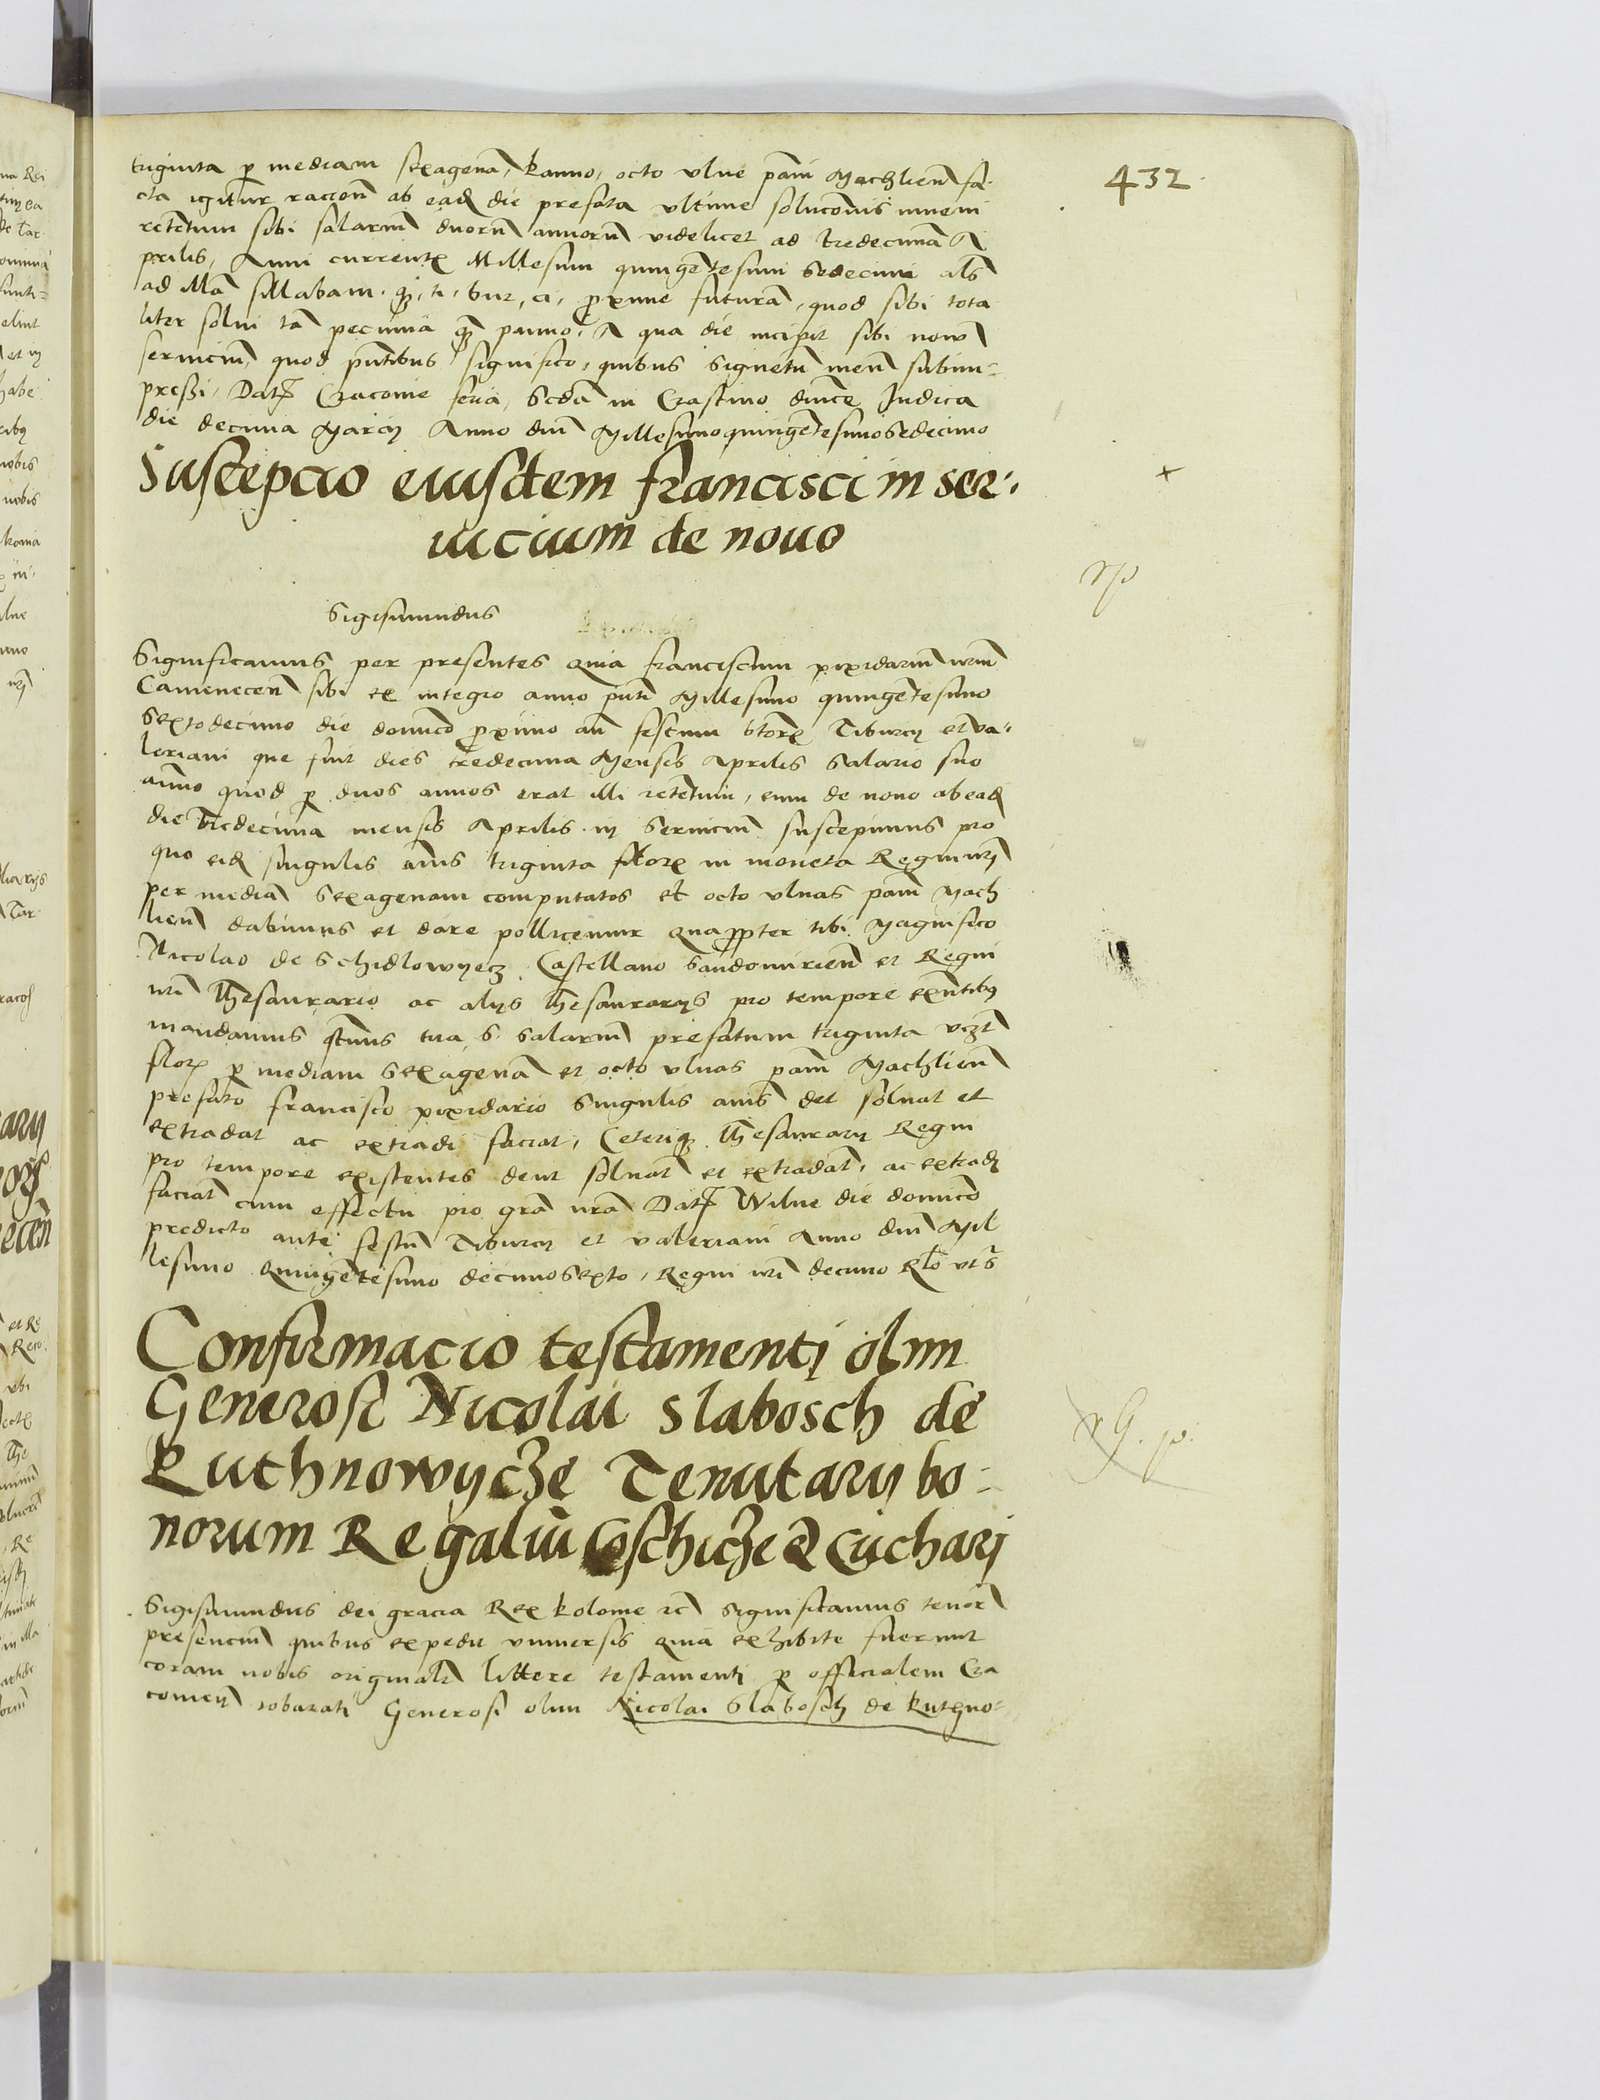 432
triginta p mediam sexagenā, kanno, octo ulne pāni Machlien̄ fa
cta igitur racoēn ab eadē die prefata ultime soluconis inveni
retētum sibi salariū duorū annorū videlicet ad tredecimā A
prilis, Anni currentis Millesimi quingētesimi Sedecimi als
ad illā sillabam. q, ti, bur, ci, proxime futurā, quod sibi tota
liter solui tā pecunia q panno, A qua die incipit sibi novū
seruiciū, quod pn̄tibus significo, quibus Signetū meū subim-
pressi, Dat Cracovie feria, Scdā in Crastino dnice Judica
die decima Marcy Anno dnī Millesimoquingētesimosedecimo
Suscepcio eiusdem francisci in ser-
uicium de nouo
rp
Sigismundus
Significamus per presentes quia franciscum pixidariū nrm̄
Camenecen̄ sibi ex integro anno pn̄ti Millesimo quingētesimo
Sextodecimo die domīco proximo an̄ festum Tiburcy et va-
leriani que fuit dies tredecima Mensis Aprilis Salario suo
anno quod p duos annos erat illi retētum, eum de nouo ab eadē
die tredecima mensis Aprilis in Seruiciū suscepimus pro
quo eidē singulis anīs triginta flore in moneta Regni nrī
per mediā Sexagenam computatos et octo ulnas pāni Mach
lien̄ dabimus et dare pollicemur Quapropter tibi Magnifico
Nicolao de Schidlowyecz Castellano Sandomirien̄ et Regni
nrī Thesaurario ac alys Thesaurarys pro tempore exn̄tibus
mandamus qtenus tua S. Salariū prefatum triginta vczt
flor p mediam Sexagenā et octo ulnas pāni Machlien̄
prefato francisco pixidario Singulis anīs det soluat et
extradat ac extradi faciat, Ceteriq Thesaurary Regni
pro tempore existentes dent soluāt et extradāt, ac extradi
faciāt cum effectu pro grā nrā Dat Wilne die domīco
predicto ante festū Tiburcy et valeriani Anno dnī Mil
lesimo Quingētesimo decimosexto, Regni nrī decimo Rlo vts
Confirmacio testamenti olim
Generosi Nicolai Slabosch de
Ruthnowycze Tenutary bo-
norum Regaliū Coschicze & Cuchari
Sigismundus dei gracia Rex Polonie rc̄ Significamus tenore
presenciū quibus expedit vniuersis quia exhibite fuerunt
coram nobis originales littere testamenti p officialem Cra
covien̄ robarati Generosi olim Nicolai Slabosch de Ruthno-